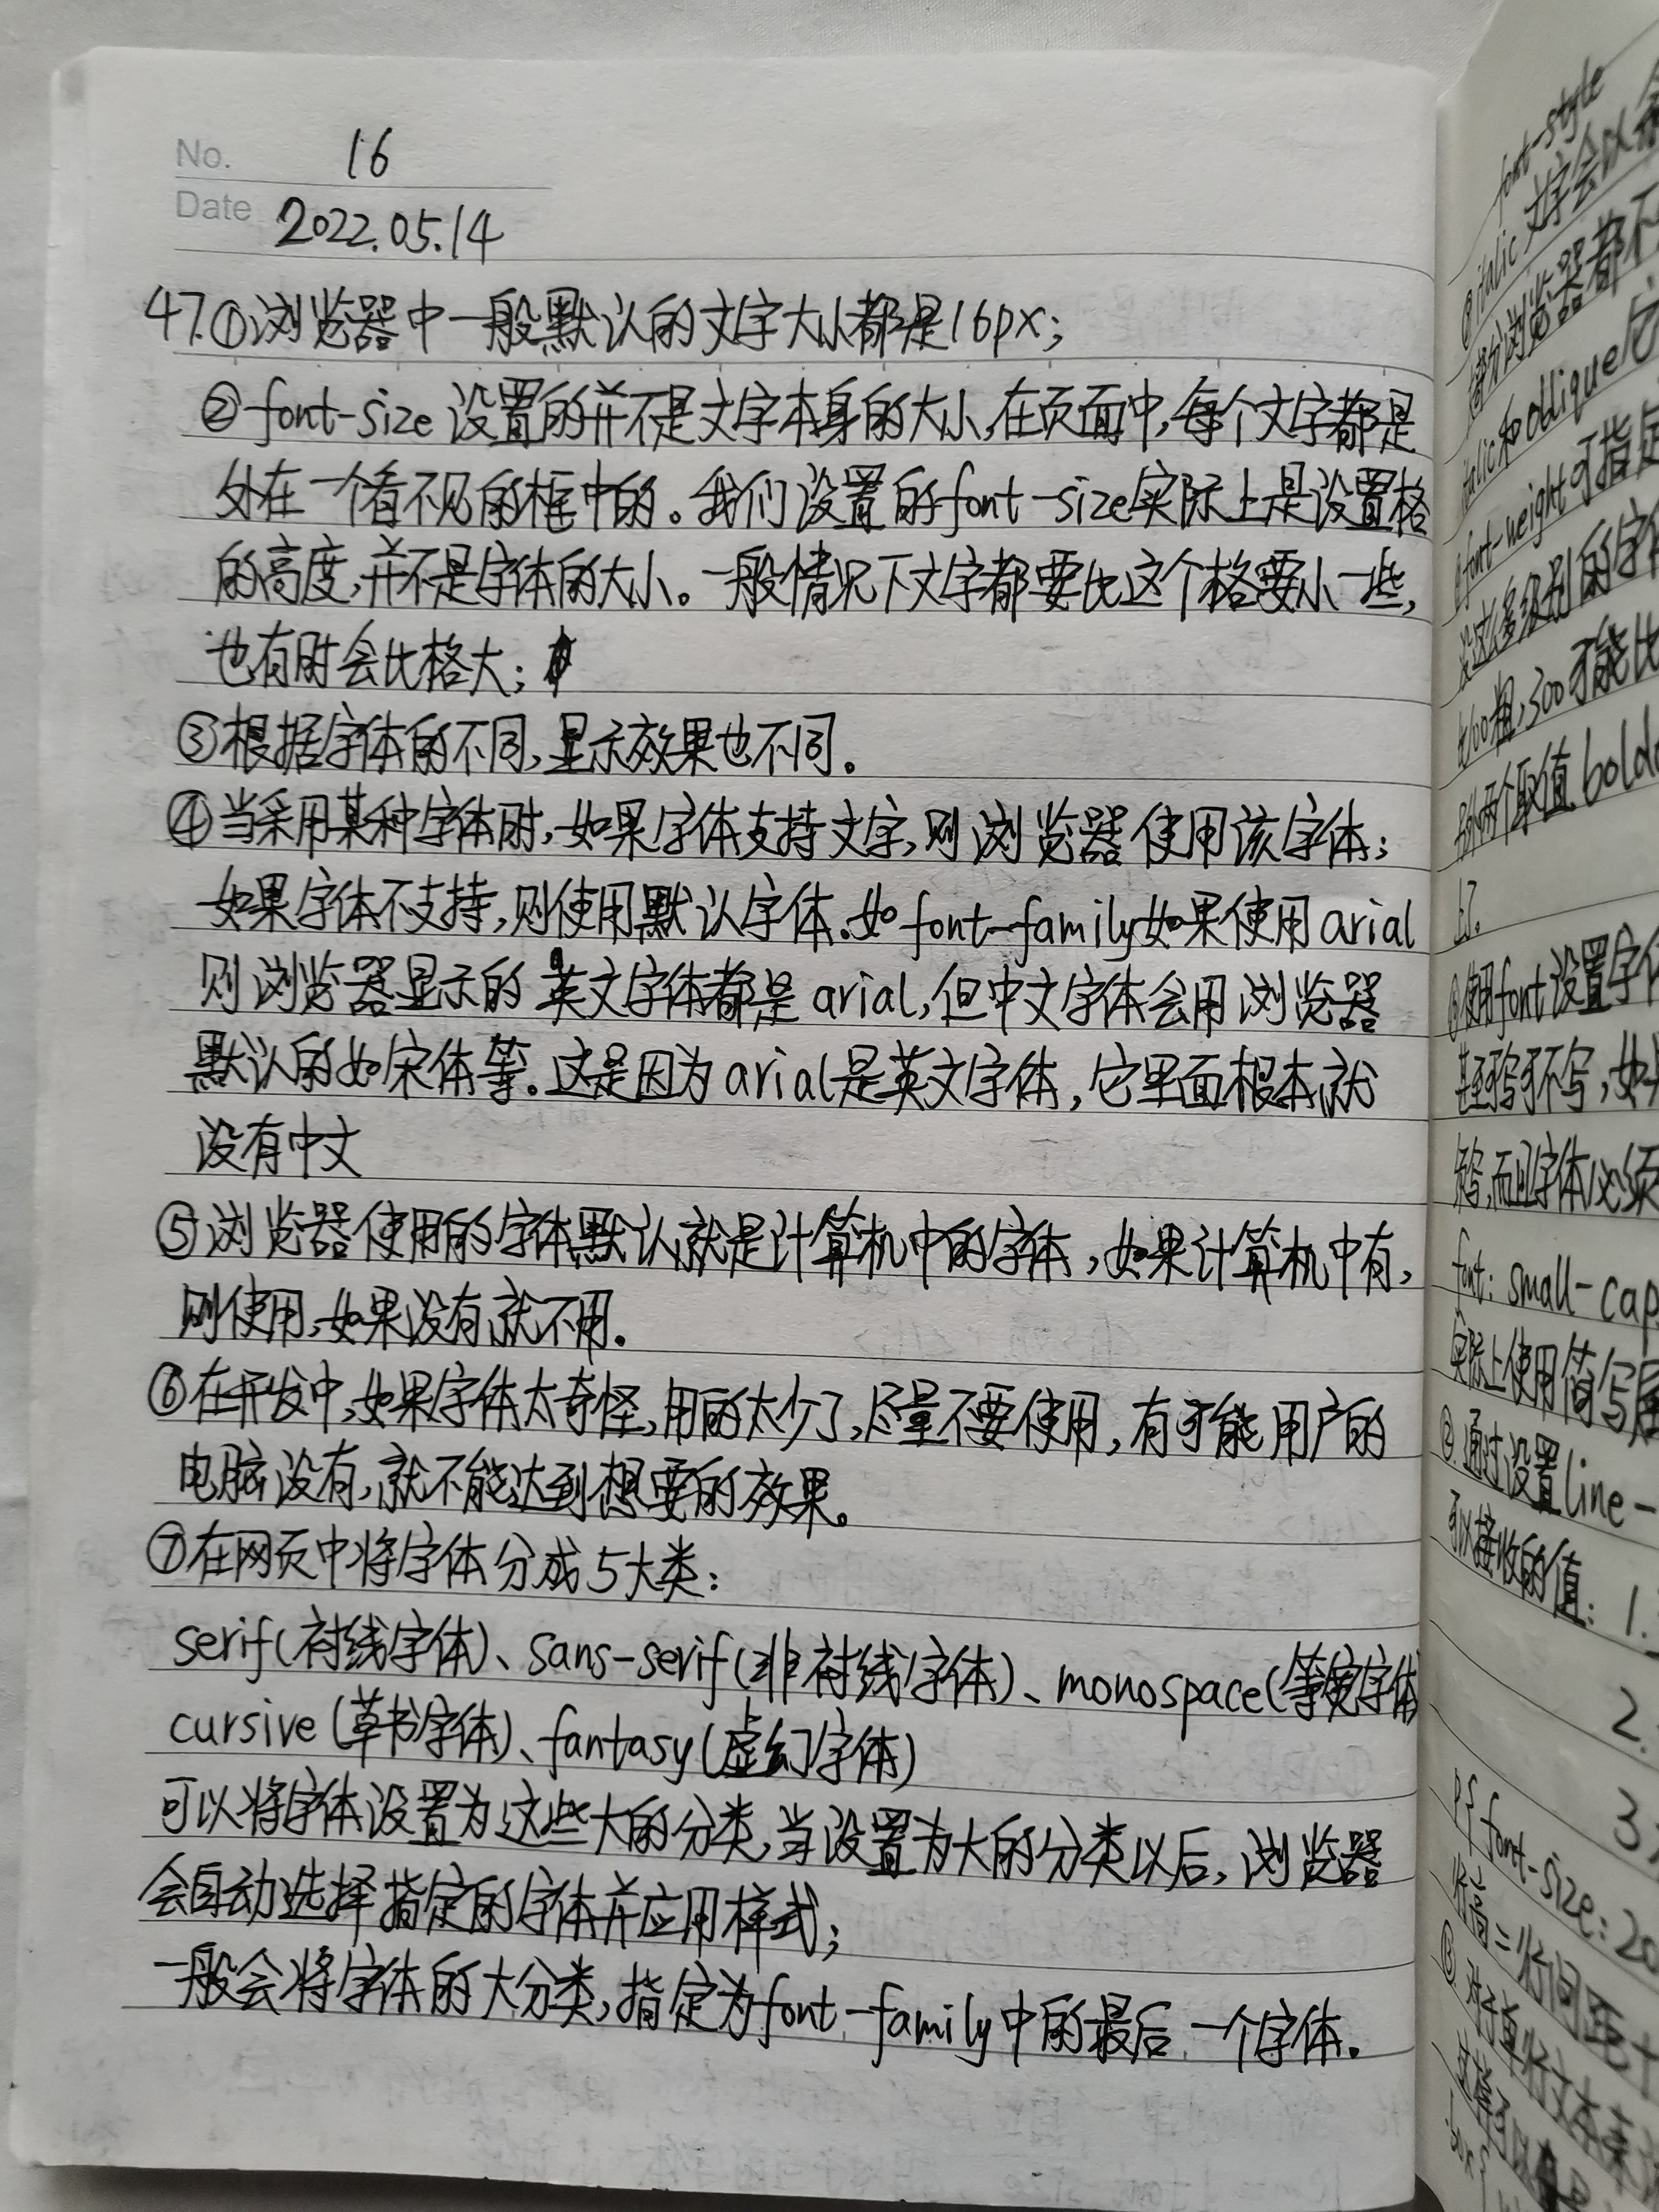 No. 16
Date 2022.05.14
47.①浏览器中一般默认的文字大小都是16px;
②font-size设置的并不是文字本身的大小,在页面中,每个文字都是
处在一个看不见的框中的。我们设置的font-size实际上是设置格
的高度,并不是字体的大小。一般情况下文字都要比这个格要小一些,
也有时会比格大;
③根据字体的不同,显示效果也不同。
④当采用某种字体时,如果字体支持文字,则浏览器使用该字体;
如果字体不支持,则使用默认字体.如font-family如果使用arial
则浏览器显示的英文字体都是arial,但中文字体会用浏览器
默认的如宋体等.这是因为arial是英文字体,它里面根本就
没有中文
⑤浏览器使用的字体默认就是计算机中的字体,如果计算机中有,
则使用,如果没有就不用。
⑥在开发中,如果字体太奇怪,用的太少了,尽量不要使用,有可能用户的
电脑没有,就不能达到想要的效果。
⑦在网页中将字体分成5大类:
serif(衬线字体)、sans-serif(非衬线字体)、monospace(等宽字体
cursive(草书字体)、fantasy(虚幻字体)
可以将字体设置为这些大的分类,当设置为大的分类以后,浏览器
会自动选择指定的字体并应用样式;
一般会将字体的大分类,指定为font-family中的最后一个字体.
font-style
italic 文字会以
部分浏览器都不
italic和oblique它
font-weight可指定
没这么多级别的字体
比100粗,300可能比
两个取值 bold
了.
使用font设置字体
甚至可不写,如果
写,而且字体必须
font: small-cap
实际上使用简写属
通过设置line-
可以接收的值: 1.
2.
3.
p{font-size:20
行高=行间距+